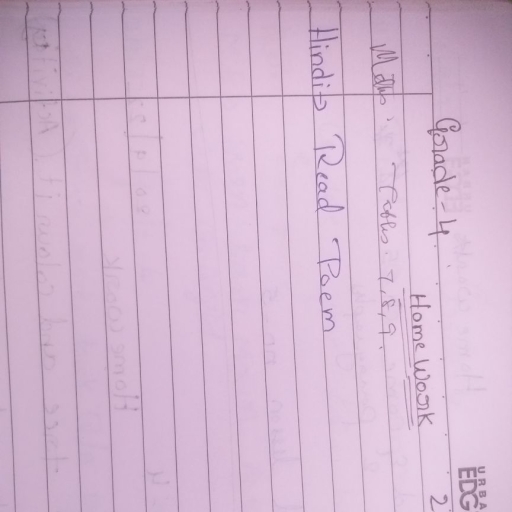 URBA
EDG
2
Grade-4.
Home Work
Maths: Tables: 7,8,9.
Hindi→ Read Poem